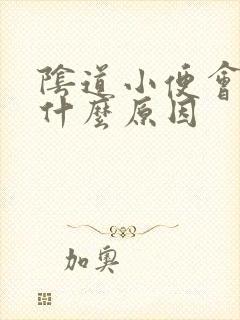 陰道小便會
什麼原因
加奧